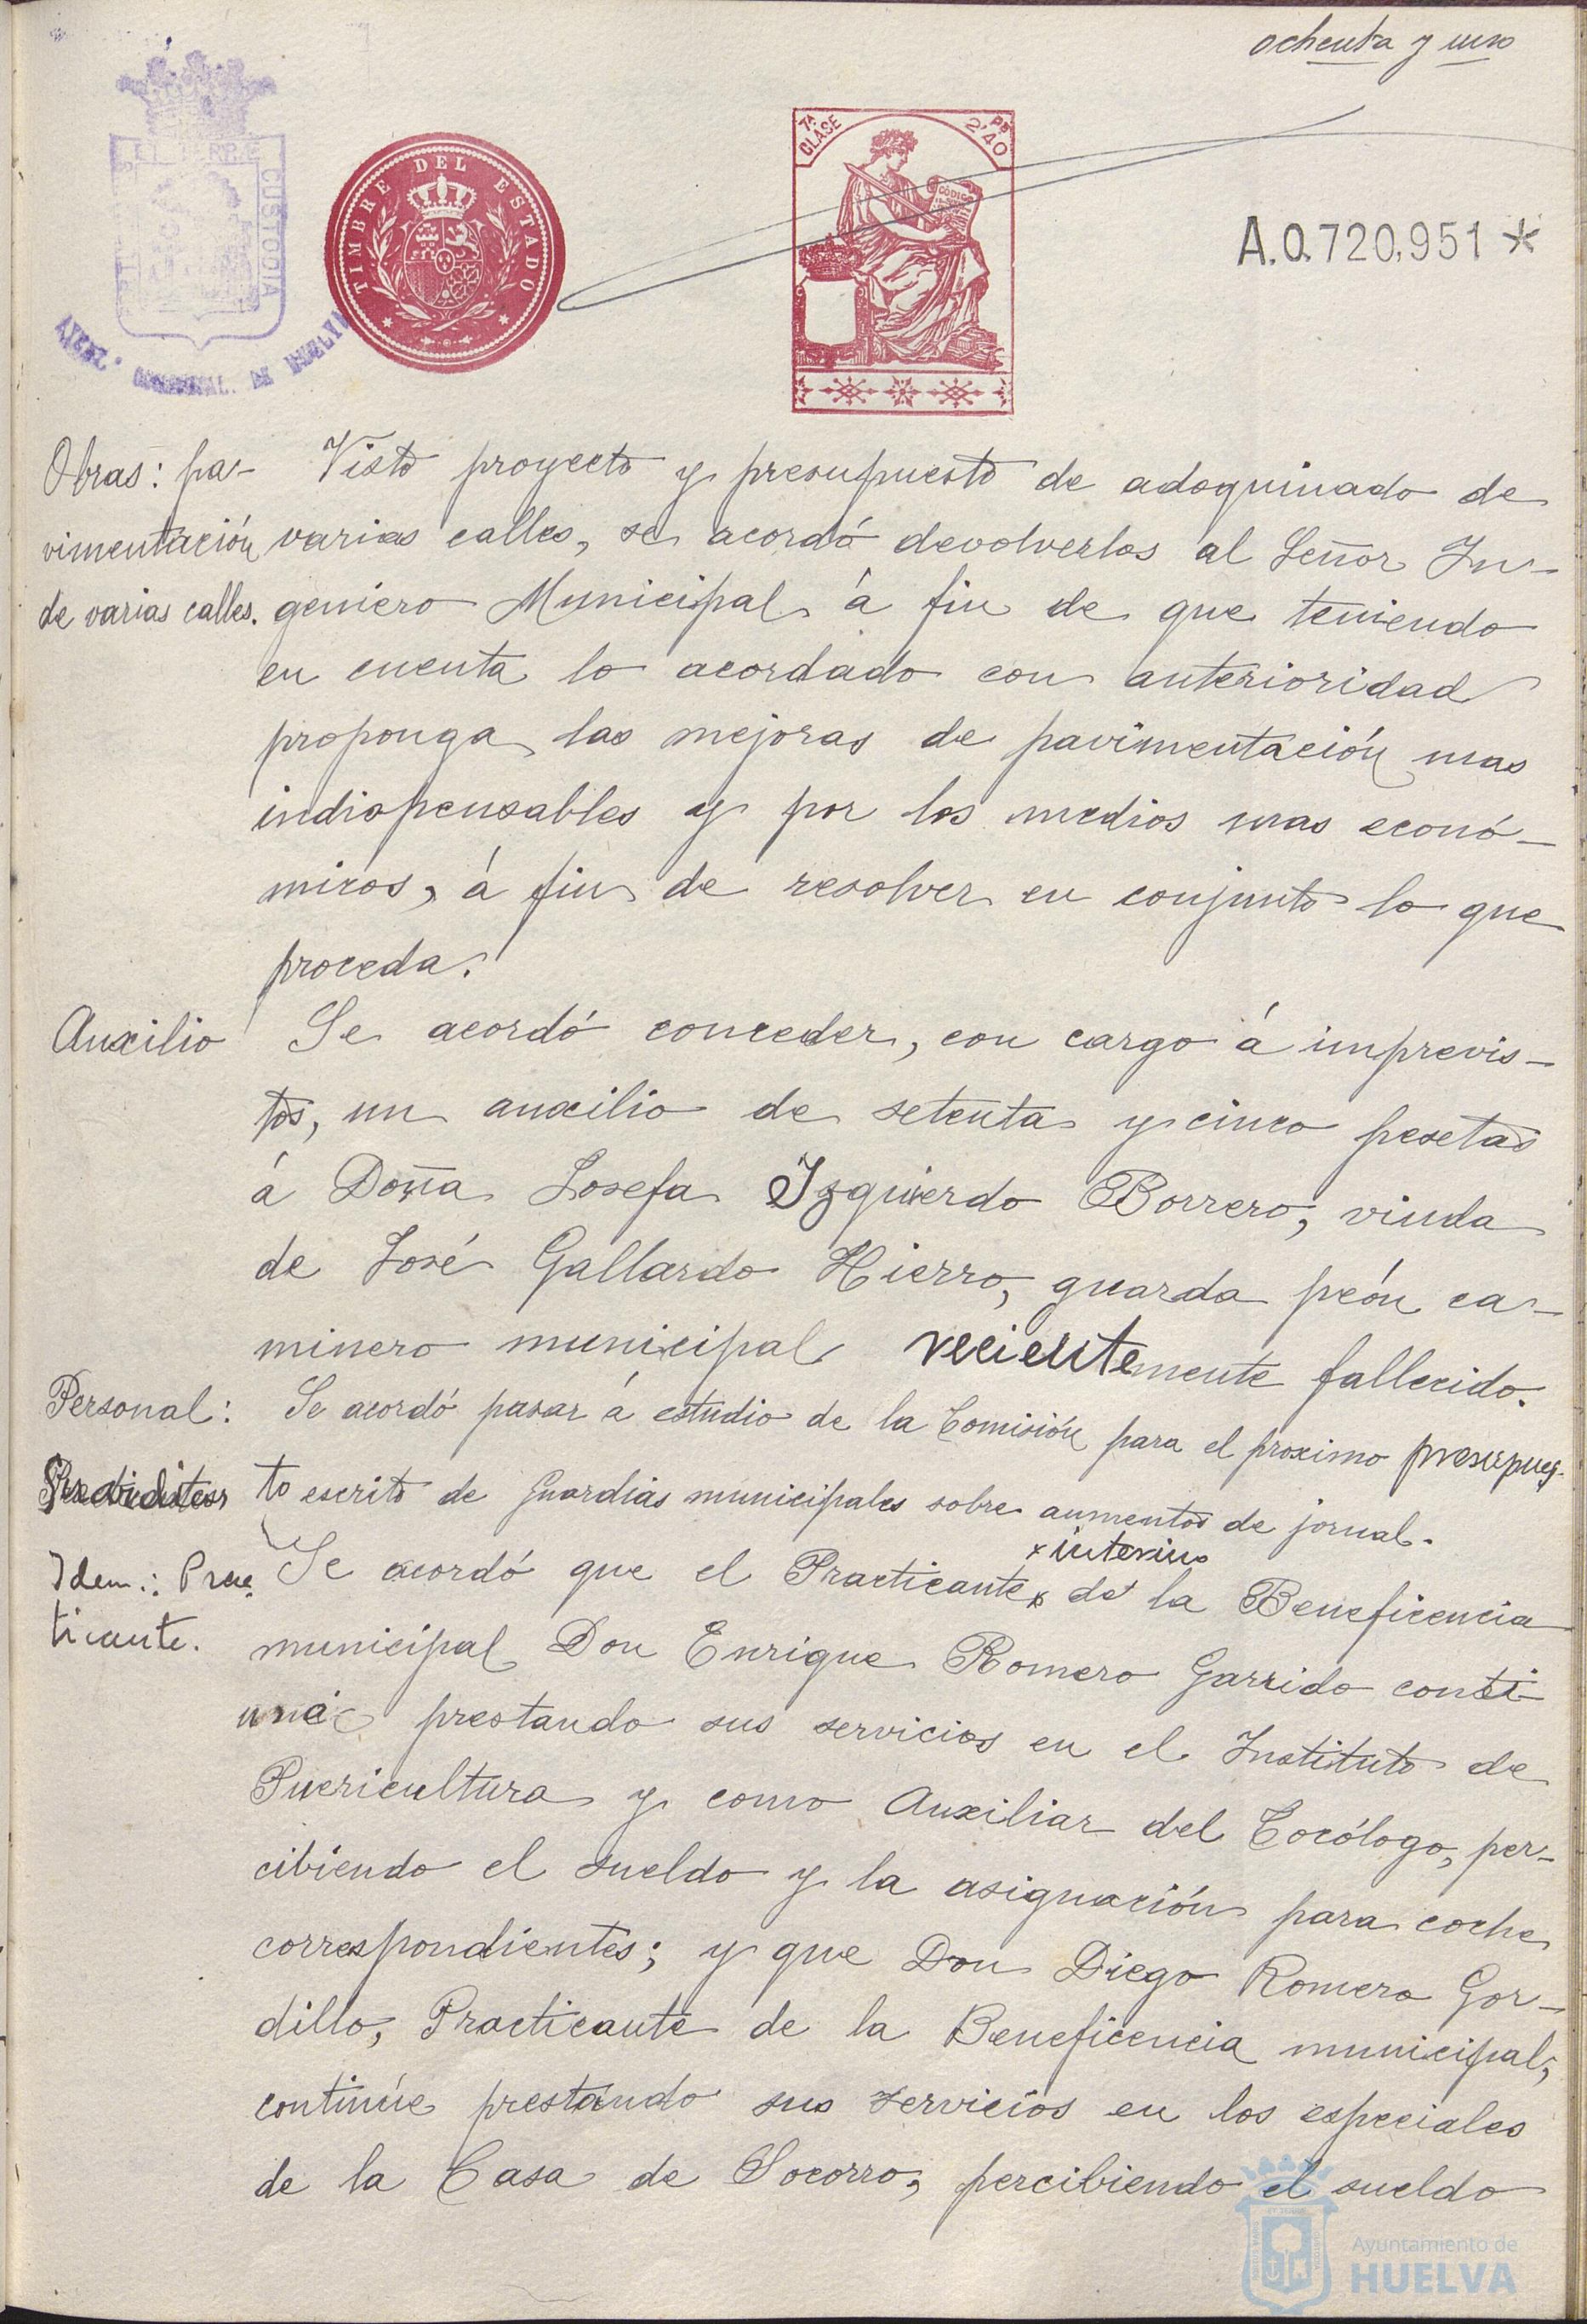 ochenta y uno
TIMBRE DEL ESTADO
7ª CLASE
Pts 2'40
CODIGO
CUSTODIA
A.0.720.951 *
AYUNT.º DE HUELVA
Obras: pa- Visto proyecto y presupuesto de adoquinado de
vimentación varias calles, se acordó devolverlos al Señor In-
de varias calles. geniero Municipal á fin de que teniendo
en cuenta lo acordado con anterioridad
proponga las mejoras de pavimentación mas
indispensables y por los medios mas econó-
micos, á fin de resolver en conjunto lo que
proceda.
Auxilio Se acordó conceder, con cargo á imprevis-
tos, un auxilio de setenta y cinco pesetas
á Doña Josefa Izquierdo Borrero, viuda
de José Gallardo Hierro, guarda peón ca-
minero municipal recientemente fallecido.
Personal: Se acordó pasar á estudio de la Comisión para el proximo presupues-
to escrito de Guardias municipales sobre aumentos de jornal.
x interino
Idem.: Prac- Se acordó que el Practicante x de la Beneficencia
ticante. municipal Don Enrique Romero Garrido conti-
núe prestando sus servicios en el Instituto de
Puericultura y como Auxiliar del Tocólogo, per-
cibiendo el sueldo y la asignación para coche
correspondientes; y que Don Diego Romero Gor-
dillo, Practicante de la Beneficencia municipal,
continúe prestando sus servicios en los especiales
de la Casa de Socorro, percibiendo el sueldo
Ayuntamiento de
HUELVA